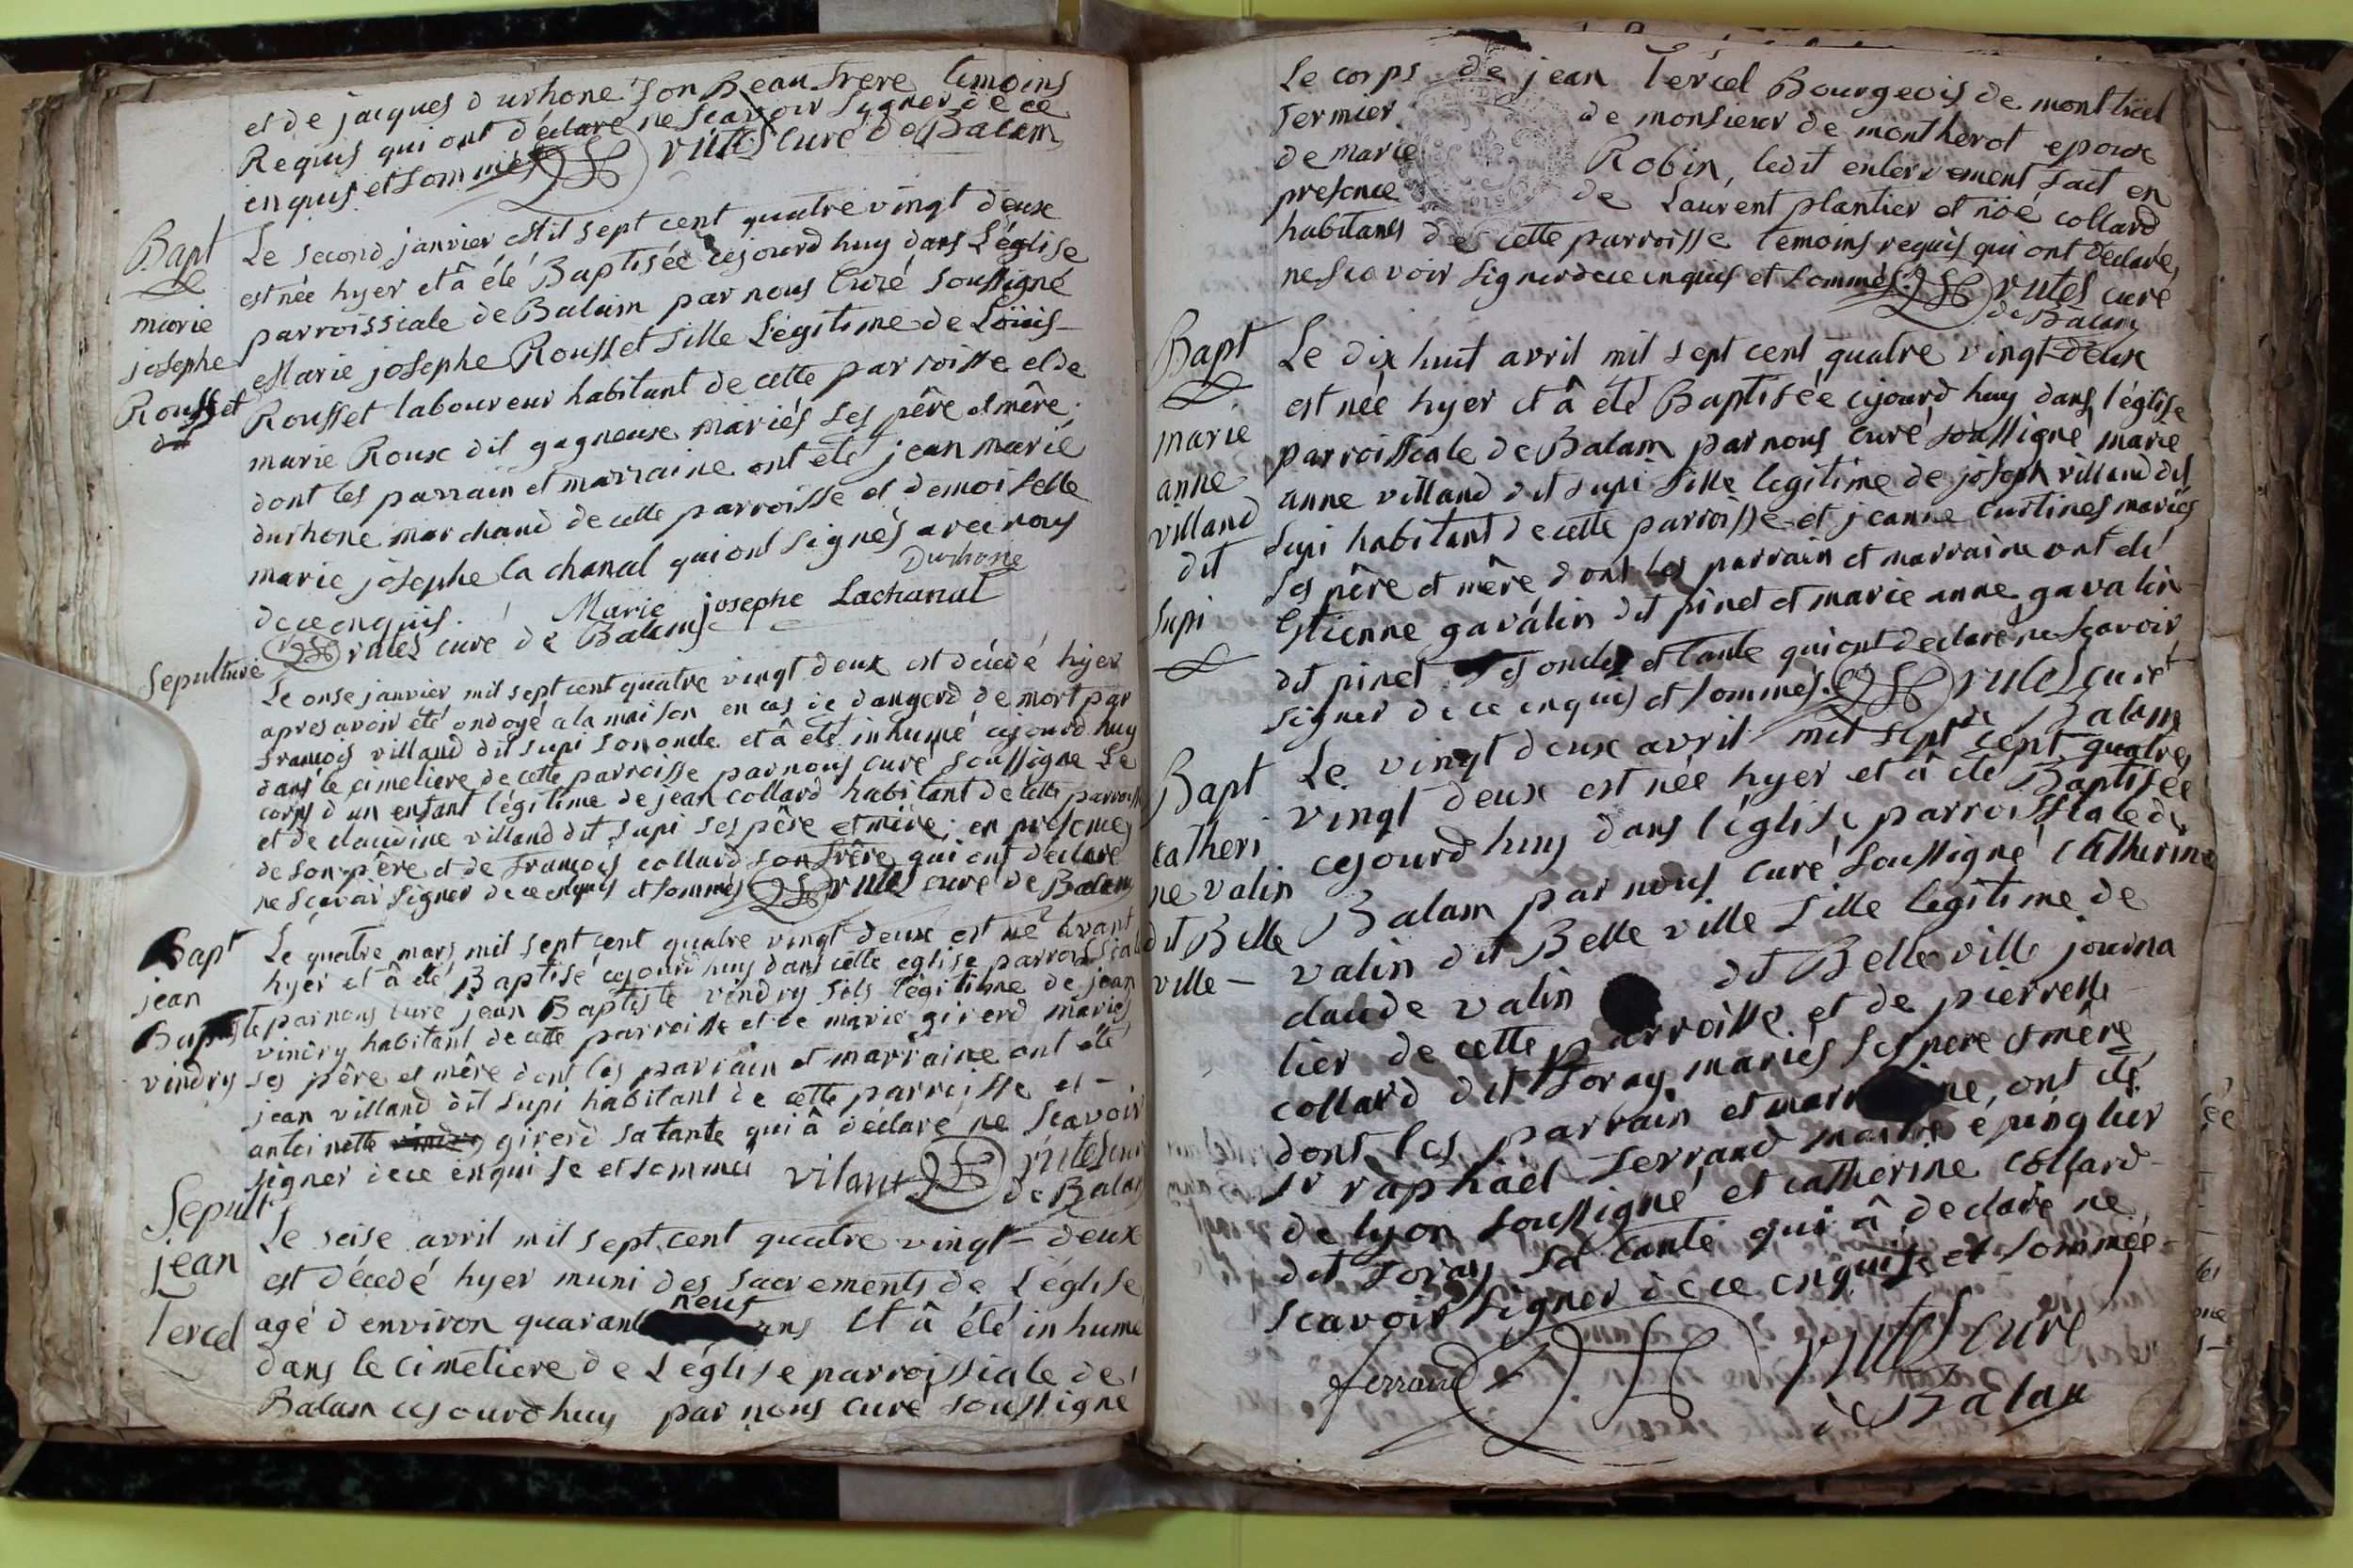 et de jacques durhone son Beau frere temoins
Requis qui ont déclaré ne scavoir signer de ce
enquis et sommés rutes curé de Balam
Bapt
marie
josephe
Rousset
Le second janvier mil sept cent quatre vingt deux
est née hyer et â été Baptisée cejourd huy dans L'église
parroissiale de Balam par nous Curé soussigné
Marie josephe Rousset fille Légitime de Loüis
Rousset laboureur habitant de cette parroisse et de
marie Roux dit gagneux mariés ses pêre et mêre
dont les parrain et marraine ont eté jean marie
durhone marchand de cette parroisse et demoiselle
marie josephe la chanal qui ont signés avec nous
de ce enquis. Durhone
Marie josephe Lachanal
rutes curé de Balam
Sepulture
Le onse janvier mil sept cent quatre vingt deux est décédé hyer
apres avoir été ondoyé a la maison en cas de dangerd de mort par
francois villand dit supi son oncle et â été inhumé cejourd huy
dans le cimetiere de cette parroisse par nous curé soussigné Le
corps d un enfant légitime de jean collard habitant de cette parroisse
et de claudine villand dit supi ses pêre et mêre; en presence
de son pêre et de francois collard son frêre qui ont declaré
ne scavoir signer de ce enquis et sommés rutes curé de Balam
Bapt
jean
Baptiste
vindry
Le quatre mars mil sept cent quatre vingt deux est né avant
hyer et â été Baptisé cejourd huy dans cette eglise parroissiale
par nous curé jean Baptiste vindry fils légitime de jean
vindry habitant de cette parroisse et de marie girerd mariés
ses pêre et mêre dont les parrain et marraine ont été
jean villand dit supi habitant de cette parroisse et
antoinette girerd sa tante qui â déclaré ne scavoir
signer de ce enquise et sommée vilant rutes curé
de Balam
Sepult
jean
Tercel
Le seise avril mil sept cent quatre vingt deux
est décédé hyer muni des sacrements de L'église
agé d environ quarante neuf ans et â été inhumé
dans le cimetiere de L'église parroissiale de
Balam cejourd huy par nous curé soussigné
Le corps de jean Tercel Bourgeois de montluel
fermier de monsieur de montherot epoux
de marie Robin, ledit enterrement fait en
presence de Laurent plantier et nöé collard
habitants de cette parroisse temoins requis qui ont déclaré
ne scavoir signer de ce enquis et sommés. rutes curé
de Balam
Bapt
marie
anne
villand
dit
supi
Le dix huit avril mil sept cent quatre vingt deux
est née hyer et â été Baptisée cejourd huy dans l'église
parroissiale de Balam par nous curé soussigné marie
anne villand dit supi fille legitime de joseph villand dit
supi habitant de cette parroisse et jeanne curtines mariés
ses pêre et mêre dont les parrain et marraine ont été
Etienne gavalin dit pinet et marie anne gavalin
dit pinet ses oncle et tante qui ont declaré ne scavoir
signer de ce enquis et sommés. rutes curé
de Balam
Bapt
catheri
ne valin
dit Belle
ville
Le vingt deux avril mil sept cent quatre
vingt deux est née hyer et â été Baptisée
cejourd huy dans l'église parroissiale de
Balam par nous curé soussigné Catherine
valin dit Belle ville fille legitime de
claude valin dit Belle ville journa
lier de cette parroisse et de pierrette
collard dit foray mariés ses pere et mêre
dont les parrain et marraine, ont été
sr raphäel ferrand maitre épinglier
de lyon soussigné et catherine collard
dit foray sa tante qui â declaré ne
scavoir signer de ce enquise et sommée
ferrand rutes curé
de Balam